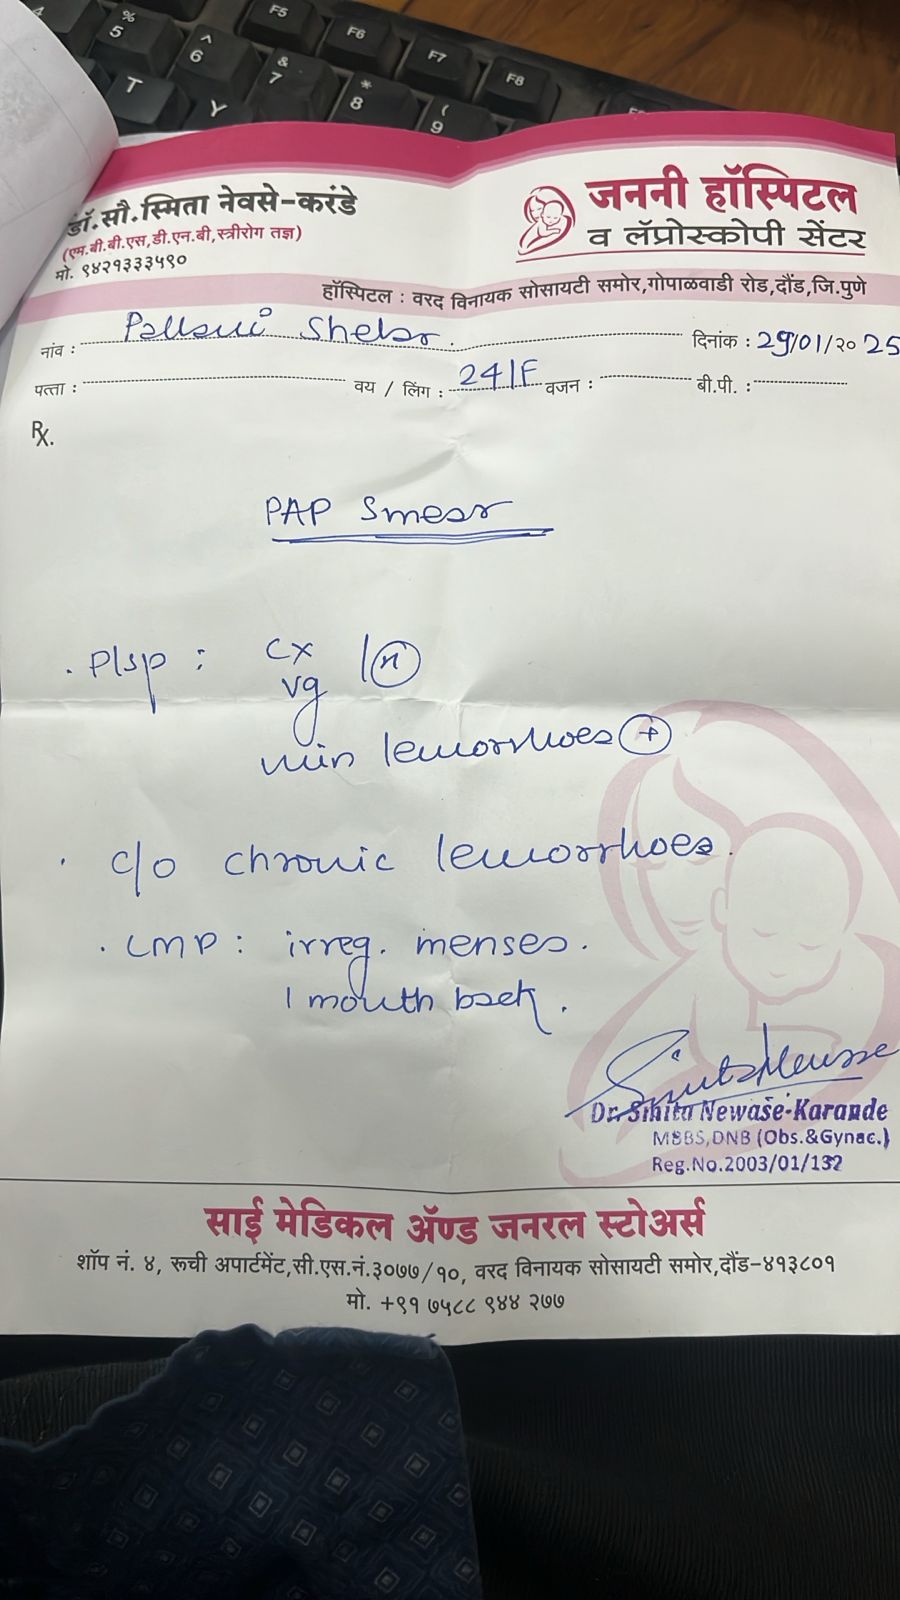 % 5
^ 6
& 7
* 8
( 9
F5
F6
F7
F8
T
Y
डॉ.सौ.स्मिता नेवसे-करंडे
(एम.बी.बी.एस,डी.एन.बी,स्त्रीरोग तज्ञ)
मो. ९४२१३३३५९०
जननी हॉस्पिटल
व लॅप्रोस्कोपी सेंटर
हॉस्पिटल : वरद विनायक सोसायटी समोर,गोपाळवाडी रोड,दौंड,जि.पुणे
नांव : Pallavi Shelar. दिनांक : 29/01/२० 25
पत्ता : वय / लिंग : 24/F वजन : बी.पी. :
Rx.
PAP Smear
. P/sp : cx
vg | (n)
min leucorrhoea (+)
. c/o chronic leucorrhoea.
. LMP : irreg. menses.
1 month back.
Dr. Smita Newase-Karande
MBBS,DNB (Obs.&Gynac.)
Reg.No.2003/01/132
साई मेडिकल ॲण्ड जनरल स्टोअर्स
शॉप नं. ४, रूची अपार्टमेंट,सी.एस.नं.३०७७/१०, वरद विनायक सोसायटी समोर,दौंड-४१३८०१
मो. +९१ ७५८८ ९४४ २७७